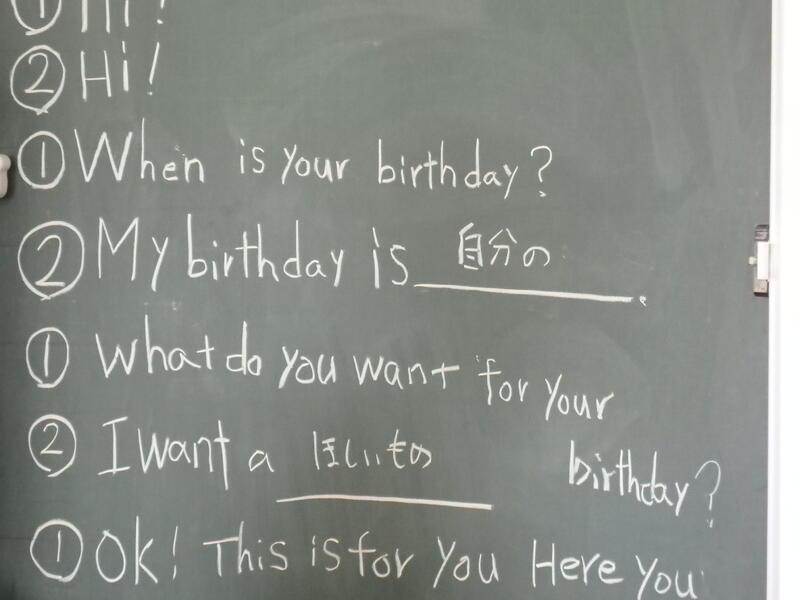 ① Hi!
② Hi!
① When is your birthday?
② My birthday is 自分の.
① What do you want for your birthday?
② I want a ほしいもの
① OK! This is for you Here you